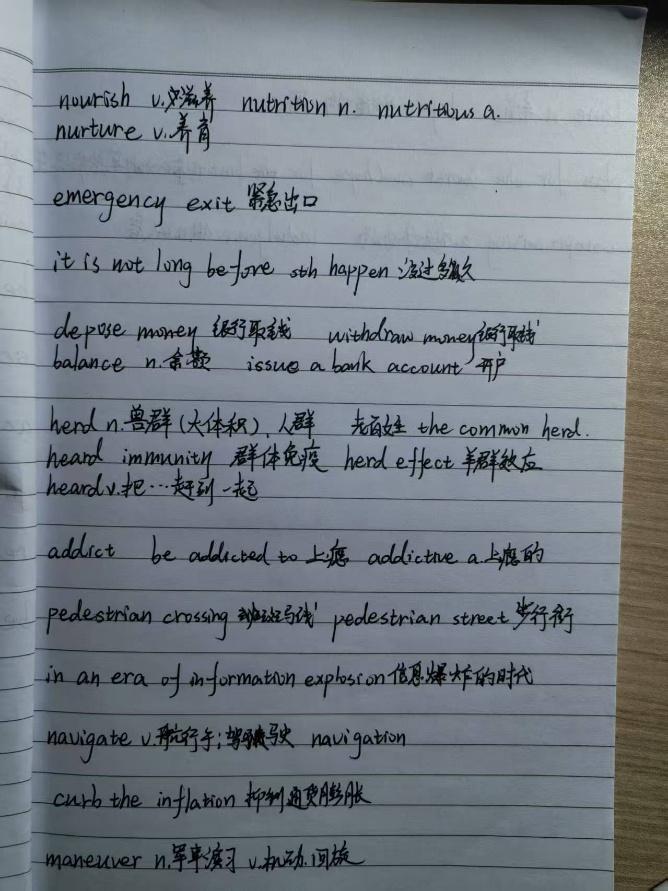 nourish v.滋养 nutrition n. nutritious a.
nurture v.养育
emergency exit 紧急出口
it is not long before sth happen 没过多久
depose money 银行取钱 withdraw money 银行取钱
balance n.余额 issue a bank account 开户
herd n.兽群(大体积)、人群 老百姓 the common herd.
heard immunity 群体免疫 herd effect 羊群效应
heard v.把…赶到一起
addict be addicted to 上瘾 addictive a.上瘾的
pedestrian crossing 斑马线 pedestrian street 步行街
in an era of information explosion 信息爆炸的时代
navigate v.航行于;驾驶 navigation
curb the inflation 抑制通货膨胀
maneuver n.军事演习 v.机动.回旋